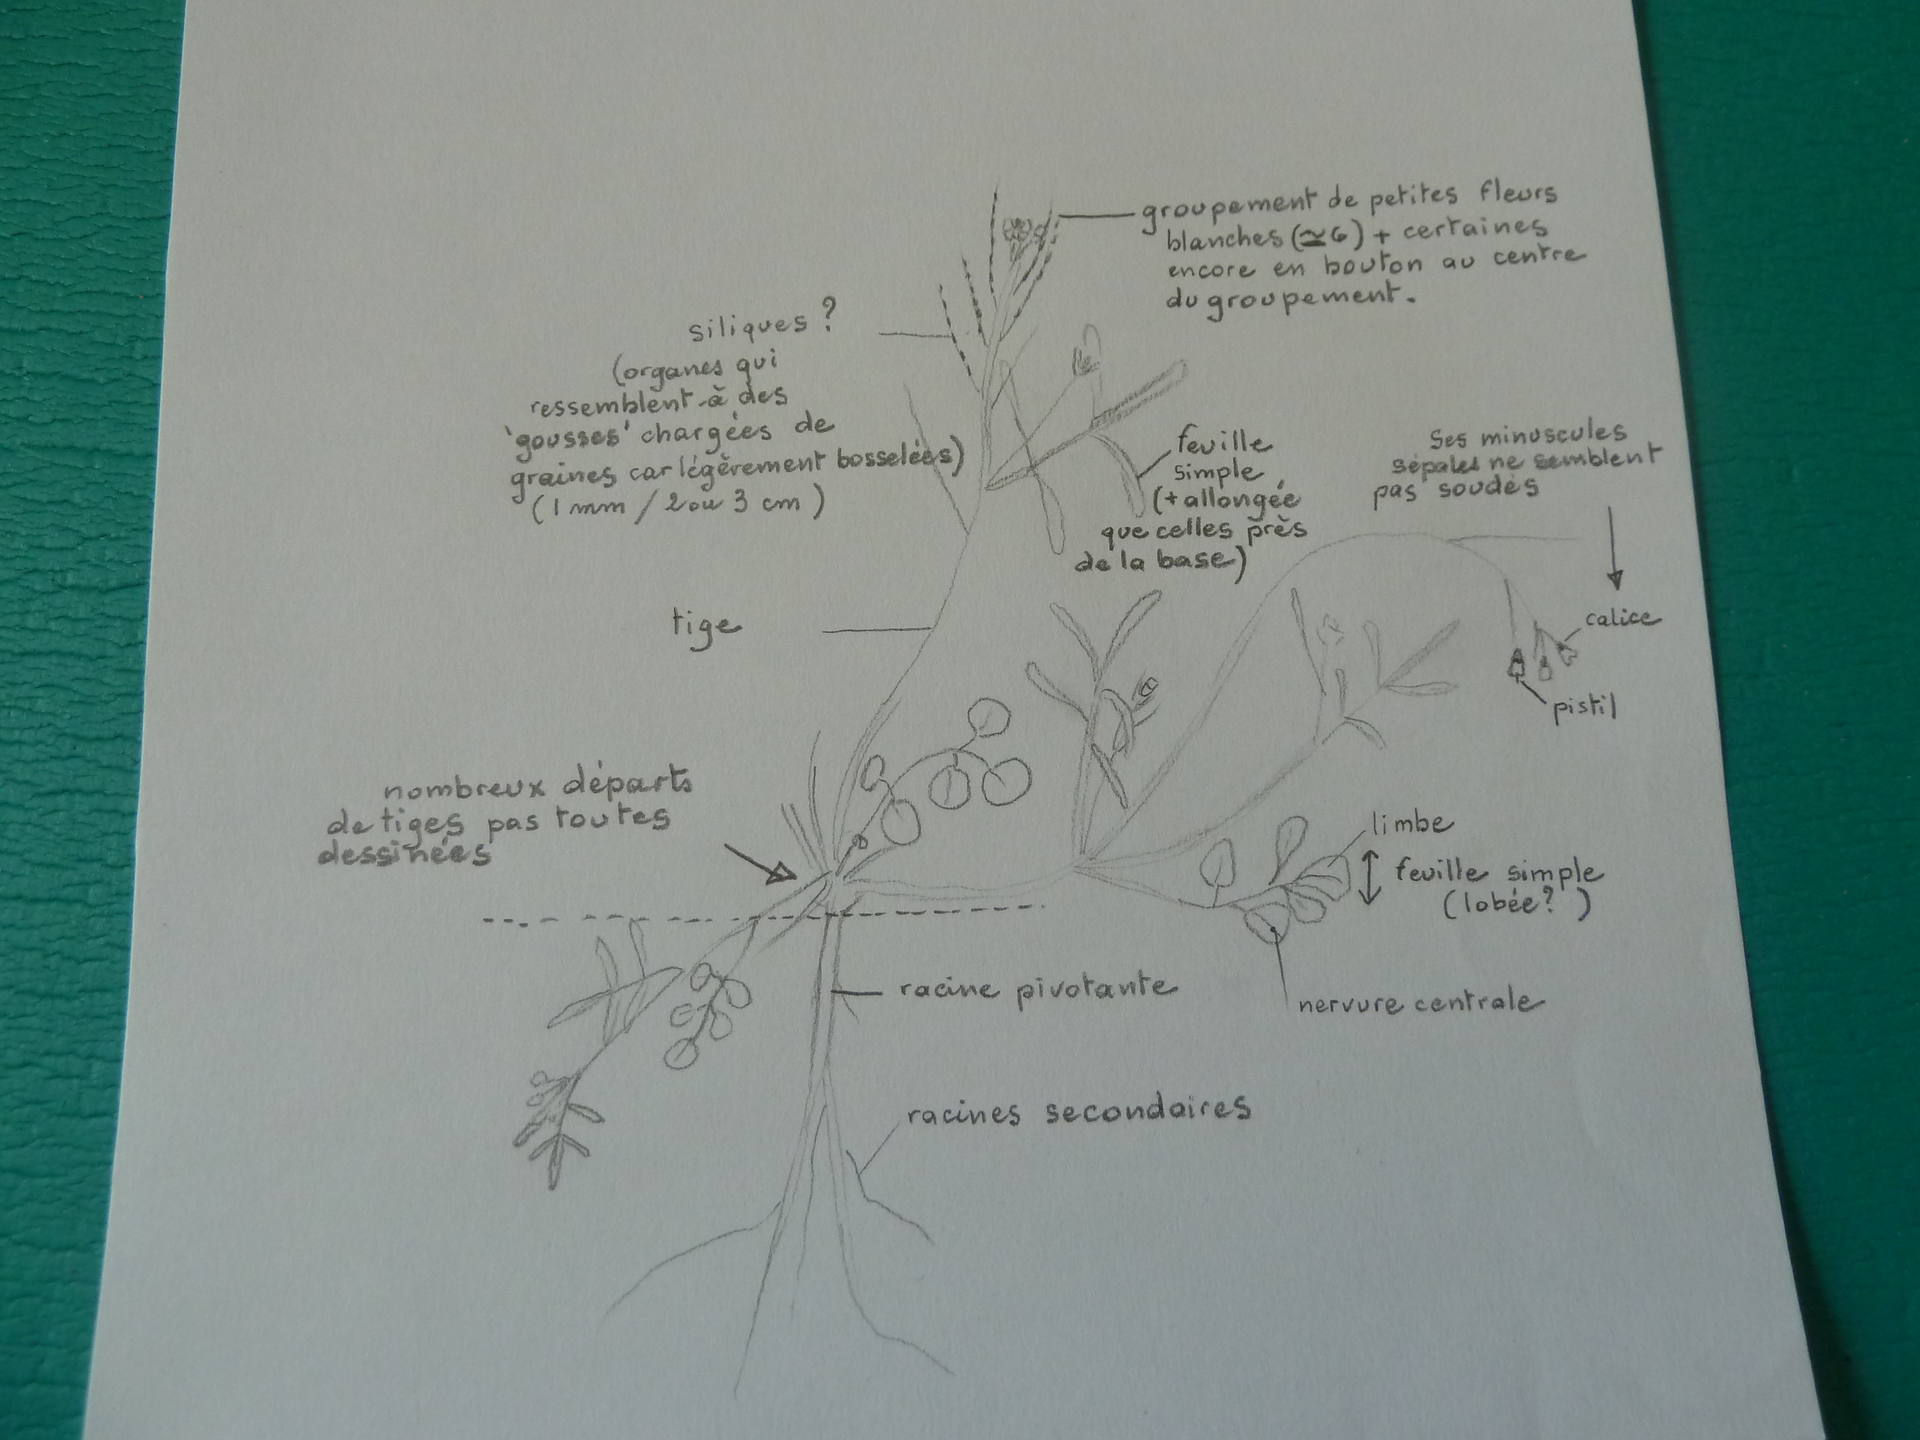 groupement de petites fleurs
blanches (≃6) + certaines
encore en bouton au centre
du groupement.
siliques ?
(organes qui
ressemblent à des
'gousses' chargées de
graines car légèrement bosselées)
(1 mm / 2 ou 3 cm)
feuille
simple
(+ allongée
que celles près
de la base)
Ses minuscules
sépales ne semblent
pas soudés
calice
pistil
tige
nombreux départs
de tiges pas toutes
dessinées
limbe
feuille simple
(lobée? )
nervure centrale
racine pivotante
racines secondaires